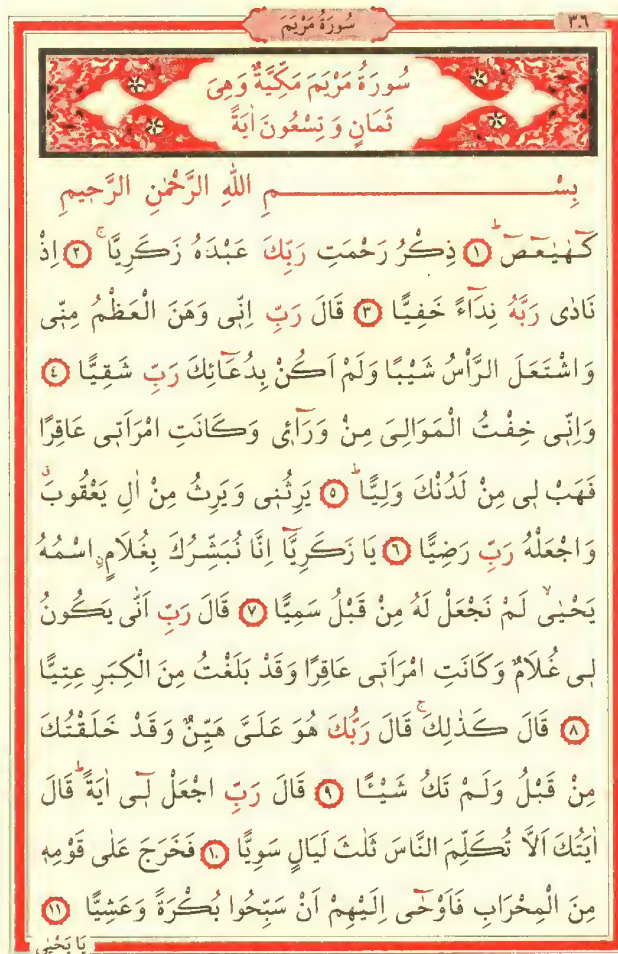 سُورَةُ مَرْيَمَ
٣٠٦
سُورَةُ مَرْيَمَ مَكِّيَّةٌ وَهِىَ
ثَمَانٍ وَ تِسْعُونَ اٰيَةً
بِسْمِ اللّٰهِ الرَّحْمٰنِ الرَّحٖيمِ
كٓهٰيٰعٓصٓ ۜ ١ ذِكْرُ رَحْمَتِ رَبِّكَ عَبْدَهُ زَكَرِيَّا ۚ ٢ اِذْ
نَادٰى رَبَّهُ نِدَٓاءً خَفِيًّا ٣ قَالَ رَبِّ اِنّٖى وَهَنَ الْعَظْمُ مِنّٖى
وَاشْتَعَلَ الرَّاْسُ شَيْبًا وَلَمْ اَكُنْ بِدُعَٓائِكَ رَبِّ شَقِيًّا ٤
وَاِنّٖى خِفْتُ الْمَوَالِىَ مِنْ وَرَٓائٖى وَكَانَتِ امْرَاَتٖى عَاقِرًا
فَهَبْ لٖى مِنْ لَدُنْكَ وَلِيًّا ۙ ٥ يَرِثُنٖى وَيَرِثُ مِنْ اٰلِ يَعْقُوبَ ۗ
وَاجْعَلْهُ رَبِّ رَضِيًّا ٦ يَا زَكَرِيَّٓا اِنَّا نُبَشِّرُكَ بِغُلَامٍ ۨاسْمُهُ
يَحْيٰى ۙ لَمْ نَجْعَلْ لَهُ مِنْ قَبْلُ سَمِيًّا ٧ قَالَ رَبِّ اَنّٰى يَكُونُ
لٖى غُلَامٌ وَكَانَتِ امْرَاَتٖى عَاقِرًا وَقَدْ بَلَغْتُ مِنَ الْكِبَرِ عِتِيًّا
٨ قَالَ كَذٰلِكَ ۚ قَالَ رَبُّكَ هُوَ عَلَىَّ هَيِّنٌ وَقَدْ خَلَقْتُكَ
مِنْ قَبْلُ وَلَمْ تَكُ شَيْـًٔا ٩ قَالَ رَبِّ اجْعَلْ لٖٓى اٰيَةً ۜ قَالَ
اٰيَتُكَ اَلَّا تُكَلِّمَ النَّاسَ ثَلٰثَ لَيَالٍ سَوِيًّا ١٠ فَخَرَجَ عَلٰى قَوْمِهٖ
مِنَ الْمِحْرَابِ فَاَوْحٰٓى اِلَيْهِمْ اَنْ سَبِّحُوا بُكْرَةً وَعَشِيًّا ١١
يَا يَحْيٰى